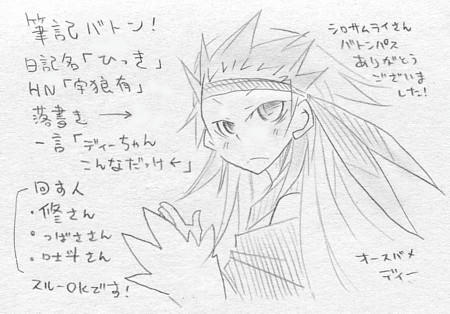 筆記バトン!
日記名「ひっき」
HN「宇狼有」
落書き →
一言「ディーちゃん
こんなだっけ←」
回す人
・修さん
・つばささん
・吐斗さん
スルーOKです!
シロサムライさん
バトンパス
ありがとう
ございま
した!
オースバメ
ディー